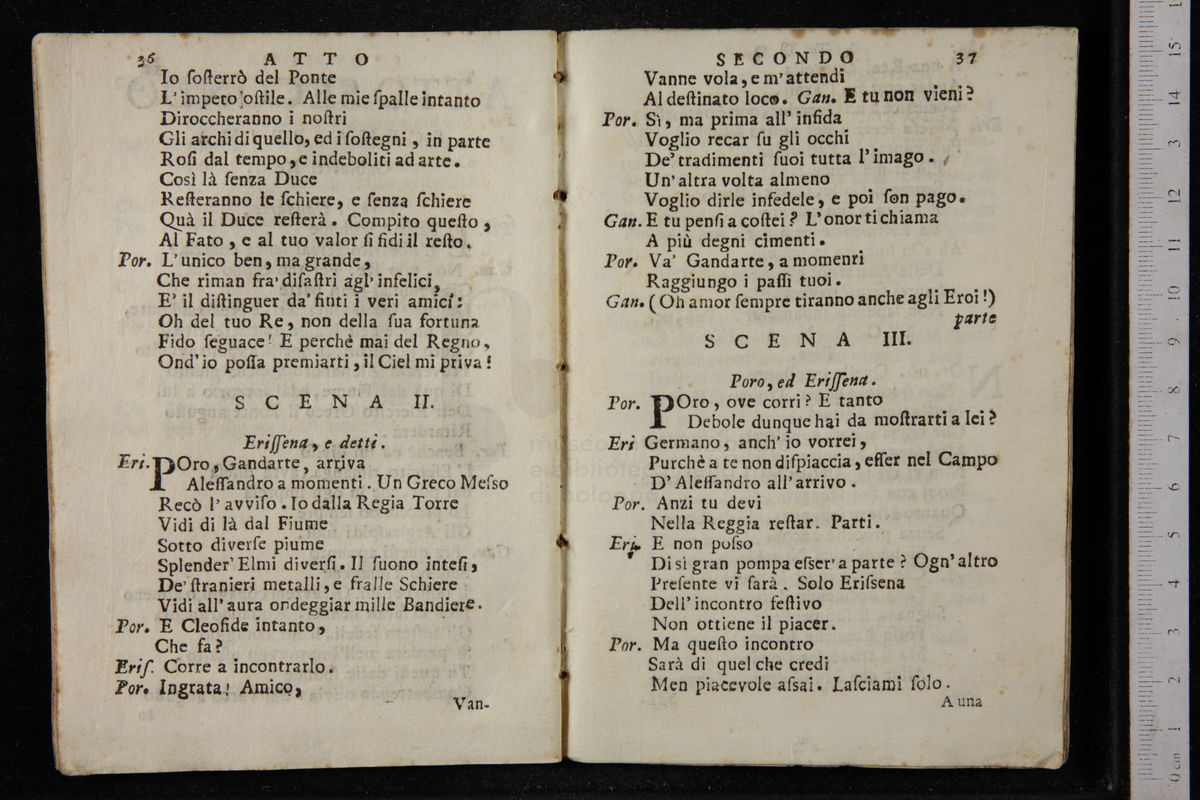 36 ATTO
Io ſoſterrò del Ponte
L' impeto oſtile. Alle mie ſpalle intanto
Diroccheranno i noſtri
Gli archi di quello, ed i ſoſtegni, in parte
Roſi dal tempo, e indeboliti ad arte.
Così là ſenza Duce
Reſteranno le ſchiere, e ſenza ſchiere
Quà il Duce reſterà. Compito queſto,
Al Fato, e al tuo valor ſi fidi il reſto.
Por. L' unico ben, ma grande,
Che riman fra' diſaſtri agl' infelici,
E' il diſtinguer da' finti i veri amici:
Oh del tuo Re, non della ſua fortuna
Fido ſeguace! E perchè mai del Regno,
Ond' io poſſa premiarti, il Ciel mi priva!
SCENA II.
Eriſſena, e detti.
Eri. POro, Gandarte, arriva
Aleſſandro a momenti. Un Greco Meſso
Recò l' avviſo. Io dalla Regia Torre
Vidi di là dal Fiume
Sotto diverſe piume
Splender' Elmi diverſi. Il ſuono inteſi,
De' ſtranieri metalli, e fralle Schiere
Vidi all' aura ondeggiar mille Bandiere.
Por. E Cleofide intanto,
Che fa?
Eriſ. Corre a incontrarlo.
Por. Ingrata! Amico,
Van-
SECONDO 37
Vanne vola, e m' attendi
Al deſtinato loco. Gan. E tu non vieni?
Por. Sì, ma prima all' infida
Voglio recar ſu gli occhi
De' tradimenti ſuoi tutta l' imago.
Un' altra volta almeno
Voglio dirle infedele, e poi ſon pago.
Gan. E tu penſi a coſtei? L' onor ti chiama
A più degni cimenti.
Por. Va' Gandarte, a momenti
Raggiungo i paſſi tuoi.
Gan. (Oh amor ſempre tiranno anche agli Eroi!)
parte
SCENA III.
Poro, ed Eriſſena.
Por. POro, ove corri? E tanto
Debole dunque hai da moſtrarti a lei?
Eri Germano, anch' io vorrei,
Purchè a te non diſpiaccia, eſſer nel Campo
D' Aleſſandro all' arrivo.
Por. Anzi tu devi
Nella Reggia reſtar. Parti.
Eri. E non poſso
Di sì gran pompa eſser' a parte? Ogn' altro
Preſente vi ſarà. Solo Eriſsena
Dell' incontro feſtivo
Non ottiene il piacer.
Por. Ma queſto incontro
Sarà di quel che credi
Men piacevole aſsai. Laſciami ſolo.
A una